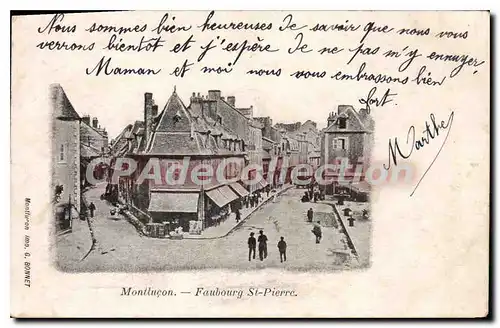 Nous sommes bien heureuses de savoir que nous vous
verrons bientôt et j'espère de ne pas m'y ennuyer
Maman et moi nous vous embrassons bien
fort.
Marthe
CPA DE FRANCE
Montluçon imp. G. BONNET
Montluçon. — Faubourg St-Pierre.